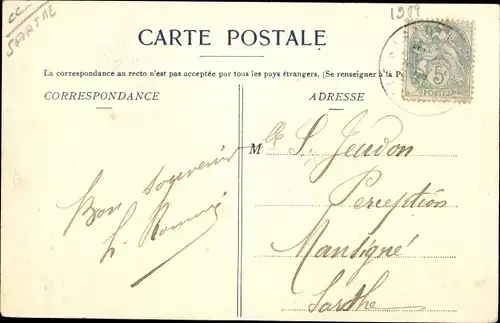 CC
SARTHE
1989
CARTE POSTALE
La correspondance au recto n'est pas acceptée par tous les pays étrangers. (Se renseigner à la
CORRESPONDANCE
ADRESSE
5c
POSTES
Bon souvenir
M
Perception
Mansigné
Sarthe